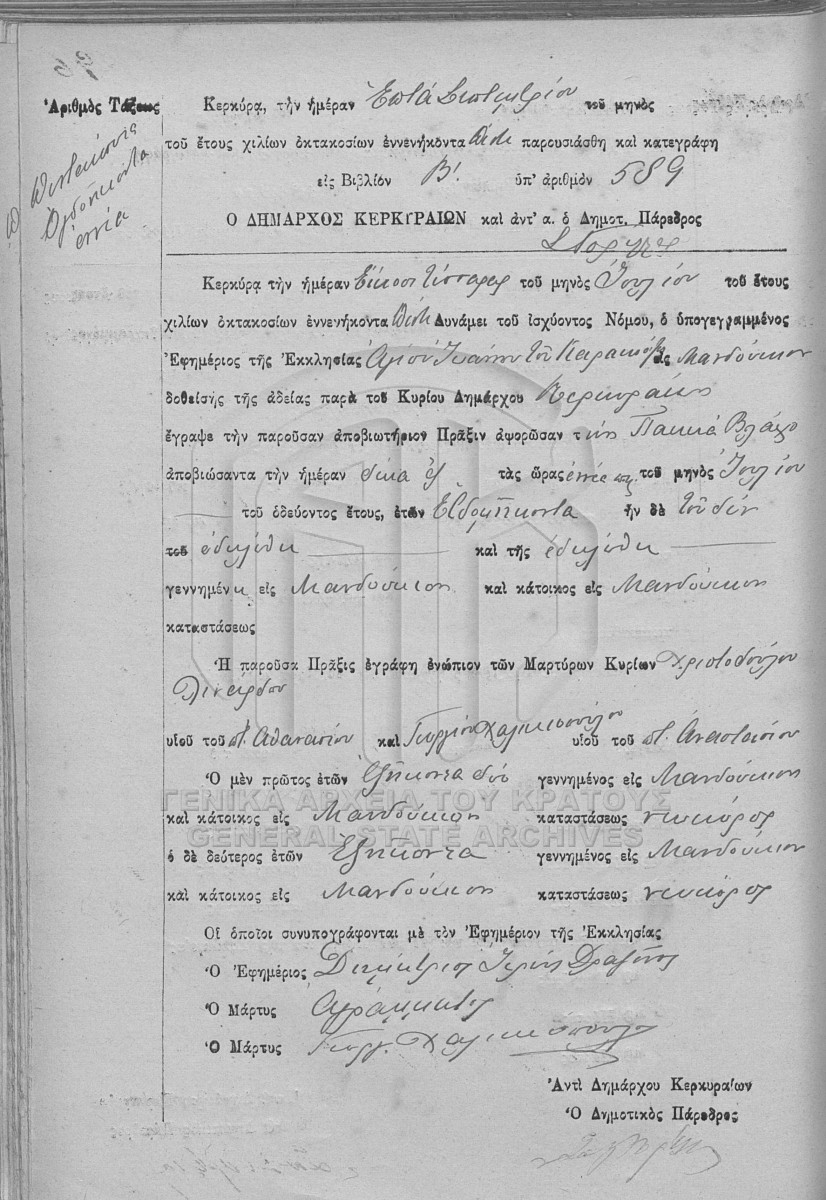 Ἀριθμὸς Τάξεως
Πεντακόσια
Ὀγδοήκοντα
ἐννέα
Κερκύρᾳ, τὴν ἡμέραν Ἑπτὰ Σεπτεμβρίου τοῦ μηνὸς
τοῦ ἔτους χιλίων ὀκτακοσίων ἐννενήκοντα παρουσιάσθη καὶ κατεγράφη
εἰς Βιβλίον Βʹ. ὑπ' ἀριθμὸν 589
Ο ΔΗΜΑΡΧΟΣ ΚΕΡΚΥΡΑΙΩΝ καὶ ἀντ' α. ὁ Δημοτ. Πάρεδρος
Κερκύρᾳ τὴν ἡμέραν Εἴκοσι τέσσαρες τοῦ μηνὸς Ἰουλίου τοῦ ἔτους
χιλίων ὀκτακοσίων ἐννενήκοντα Δυνάμει τοῦ ἰσχύοντος Νόμου, ὁ ὑπογεγραμμένος
Ἐφημέριος τῆς Ἐκκλησίας Ἁγίου Ἰωάννου τοῦ Μανδούκιον
δοθείσης τῆς ἀδείας παρὰ τοῦ Κυρίου Δημάρχου Κερκυραίων
ἔγραψε τὴν παροῦσαν ἀποβιωτήριον Πρᾶξιν ἀφορῶσαν τὴν Βλάχο
ἀποβιώσαντα τὴν ἡμέραν δέκα ἓξ τὰς ὥρας ἐννέα π.μ. τοῦ μηνὸς Ἰουλίου
τοῦ ὁδεύοντος ἔτους, ἐτῶν Ἑβδομήκοντα ἦν δὲ
τοῦ ἐδηλώθη καὶ τῆς ἐδηλώθη
γεννημένη εἰς Μανδούκιον καὶ κάτοικος εἰς Μανδούκιον
καταστάσεως
Ἡ παροῦσα Πρᾶξις ἐγράφη ἐνώπιον τῶν Μαρτύρων Κυρίων Χριστοδούλου
Λινάρδου
υἱοῦ τοῦ π. Ἀθανασίου καὶ Γεωργίου Χαλικιοπούλου υἱοῦ τοῦ π. Ἀναστασίου
Ὁ μὲν πρῶτος ἐτῶν Ἑξήκοντα δύο γεννημένος εἰς Μανδούκιον
καὶ κάτοικος εἰς Μανδούκιον καταστάσεως νεωκόρος
ὁ δὲ δεύτερος ἐτῶν Ἑξήκοντα γεννημένος εἰς Μανδούκιον
καὶ κάτοικος εἰς Μανδούκιον καταστάσεως νεωκόρος
Οἱ ὁποῖοι συνυπογράφονται μὲ τὸν Ἐφημέριον τῆς Ἐκκλησίας
Ὁ Ἐφημέριος Δημήτριος Ἱερεὺς
Ὁ Μάρτυς Ἀγράμματος
Ὁ Μάρτυς Γεώργ. Χαλικιόπουλος
Ἀντὶ Δημάρχου Κερκυραίων
Ὁ Δημοτικὸς Πάρεδρος
ΓΕΝΙΚΑ ΑΡΧΕΙΑ ΤΟΥ ΚΡΑΤΟΥΣ
GENERAL STATE ARCHIVES